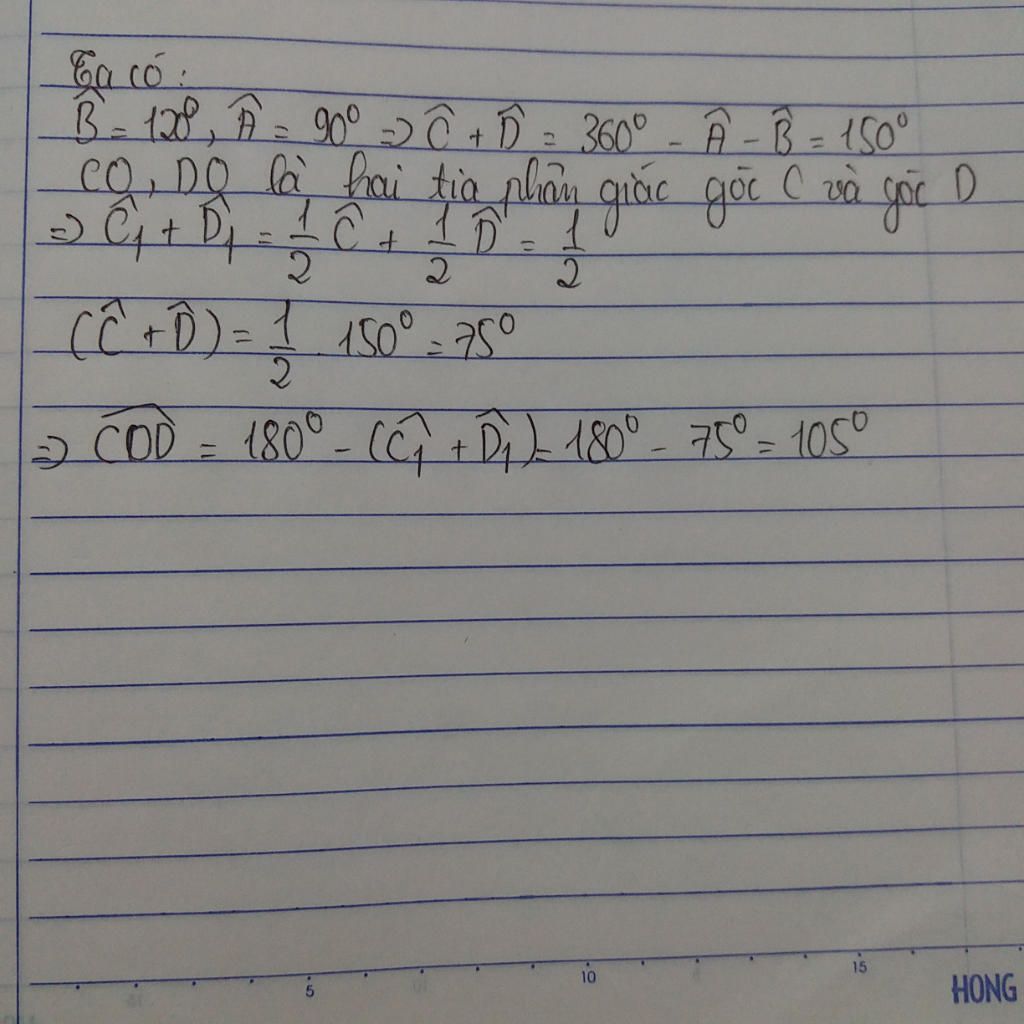 Ta có:
B̂ = 120⁰, Â = 90⁰ => Ĉ + D̂ = 360⁰ - Â - B̂ = 150⁰
CO, DO là hai tia phân giác góc C và góc D
=> Ĉ₁ + D̂₁ = 1/2 Ĉ + 1/2 D̂ = 1/2
(Ĉ + D̂) = 1/2 . 150⁰ = 75⁰
=> \widehat{COD} = 180⁰ - (Ĉ₁ + D̂₁) = 180⁰ - 75⁰ = 105⁰
5 10 15
HONG